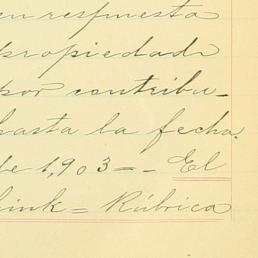 en respuesta
propiedad
por contribu-
hasta la fecha.
de 1,903=- El
link= Rúbrica